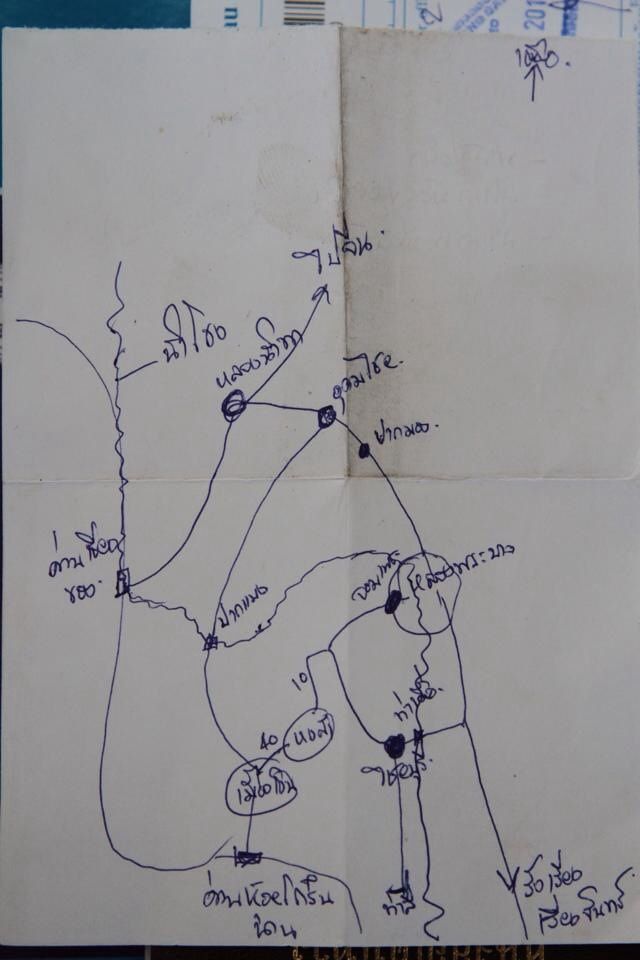 ไปจีน
น้ำโขง
หลวงน้ำทา
อุดมไชย
ปากมอง
ด่านเชียง
ของ
ปากแบง
จอมเพชร
หลวงพระบาง
10
40
หงสา
เมืองเงิน
ท่าเดื่อ
ไชยบุรี
ด่านห้วยโก๋น
น่าน
วังเวียง
เวียงจันทร์
201